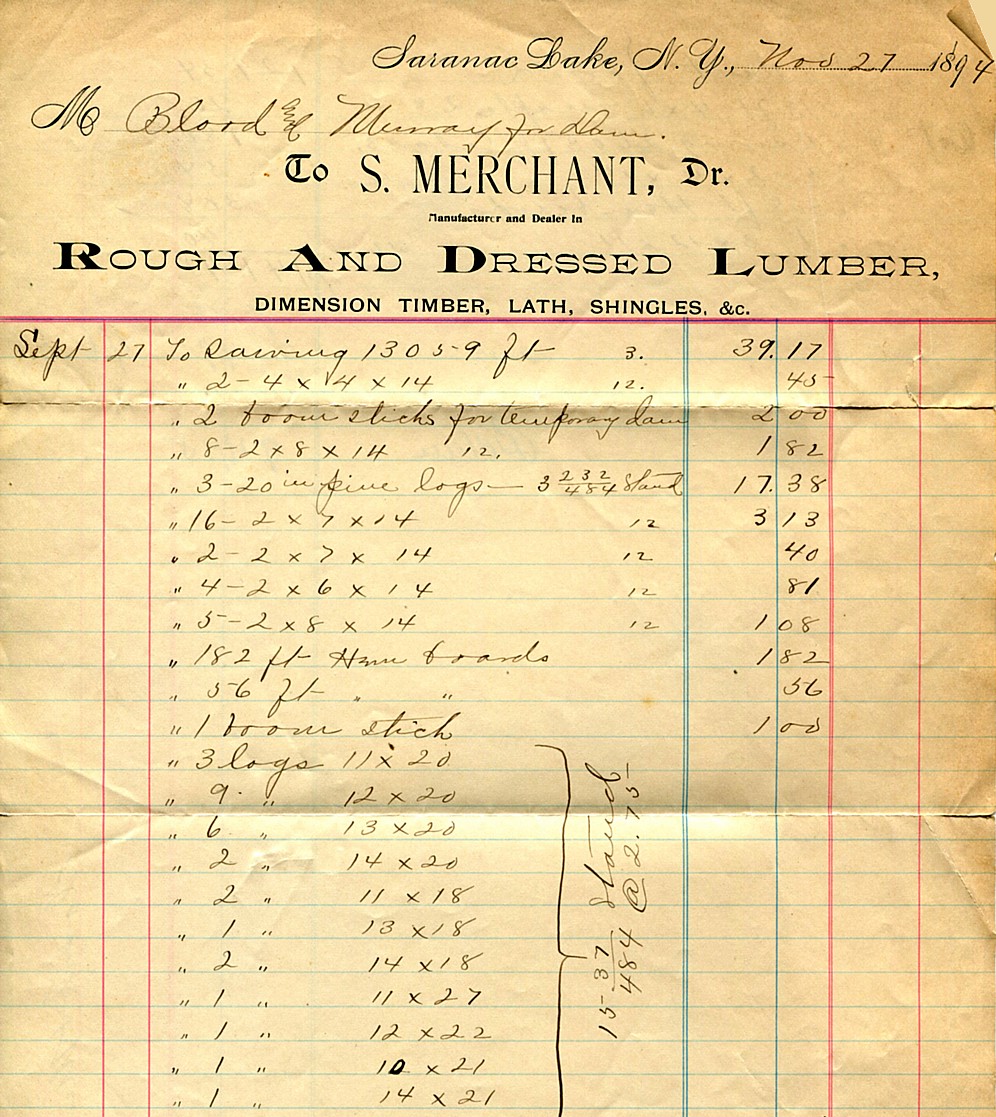 Saranac Lake, N. Y., Nov 27 1894
M Blood and Murray for Dam.
To S. MERCHANT, Dr.
Manufacturer and Dealer in
ROUGH AND DRESSED LUMBER,
DIMENSION TIMBER, LATH, SHINGLES, &c.
Sept 27 To Sawing 13059 ft 3. 39.17
" 2-4 x 4 x 14 12. 45
" 2 boom sticks for temporary dam 2 00
" 8-2 x 8 x 14 12. 1 82
" 3-20 in pine logs — 3 232/484 Stand 17.38
" 16-2 x 7 x 14 12 3 13
" 2-2 x 7 x 14 12 40
" 4-2 x 6 x 14 12 81
" 5-2 x 8 x 14 12 1 08
" 182 ft Hem boards 1 82
" 56 ft " " 56
" 1 boom stick 1 00
" 3 logs 11 x 20
" 9. " 12 x 20
" 6 " 13 x 20
" 2 " 14 x 20
" 2 " 11 x 18
" 1 " 13 x 18
" 2 " 14 x 18
" 1 " 11 x 27
" 1 " 12 x 22
" 1 " 10 x 21
" 1 " 14 x 21
15 37/484 Stand
@ 2.75